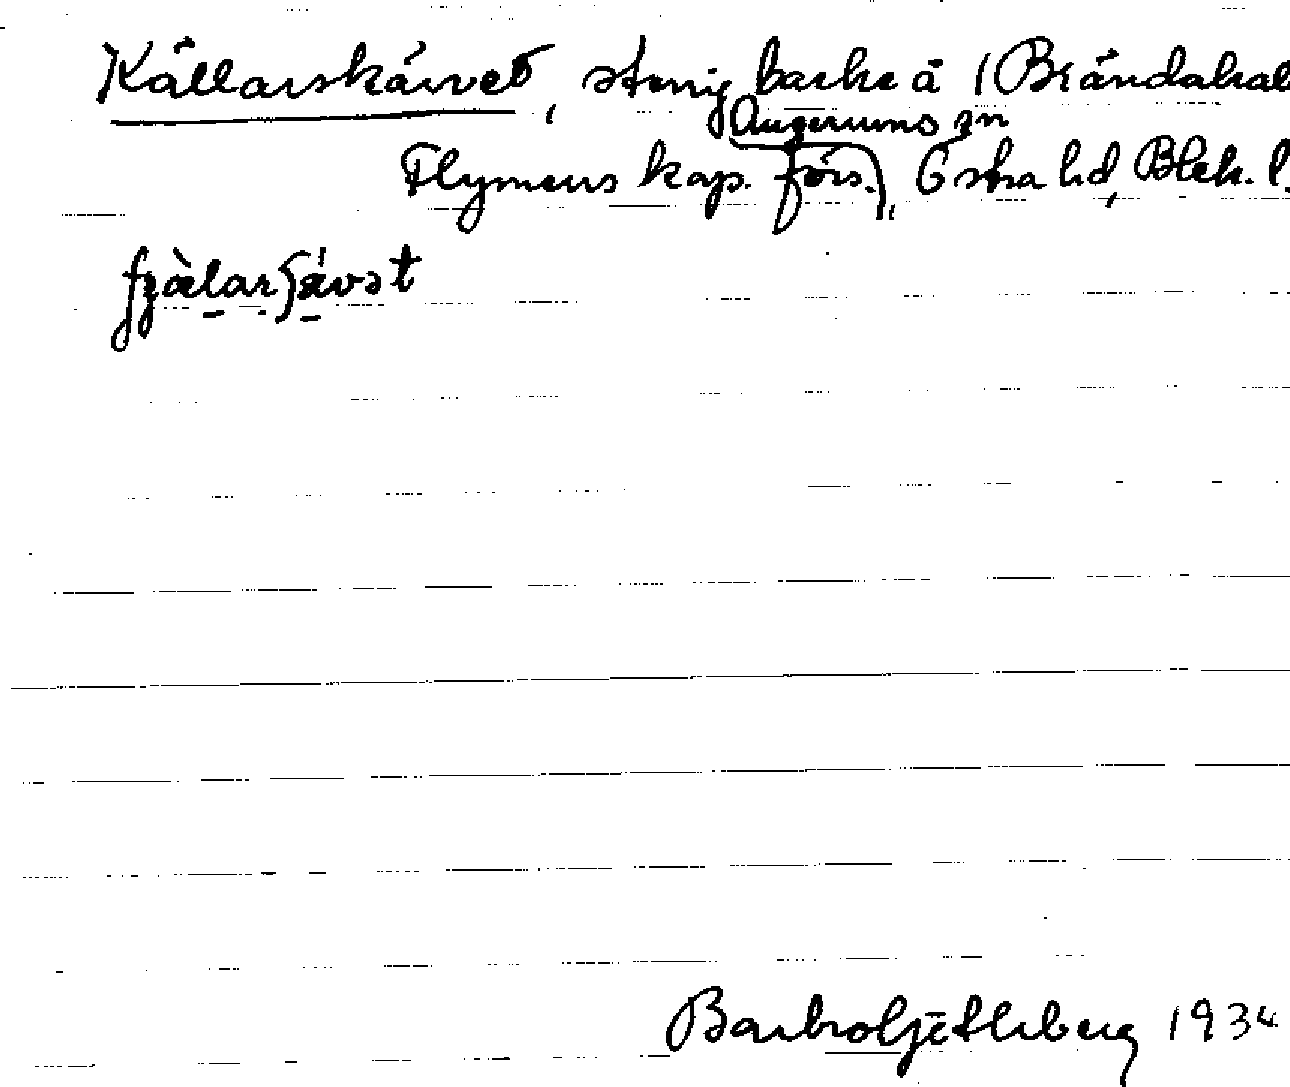 Källarskärvet, stenig backe å (Brändahal
Augerums sn
Flymens kap. förs.), Östra hd, Blek. l.
1934